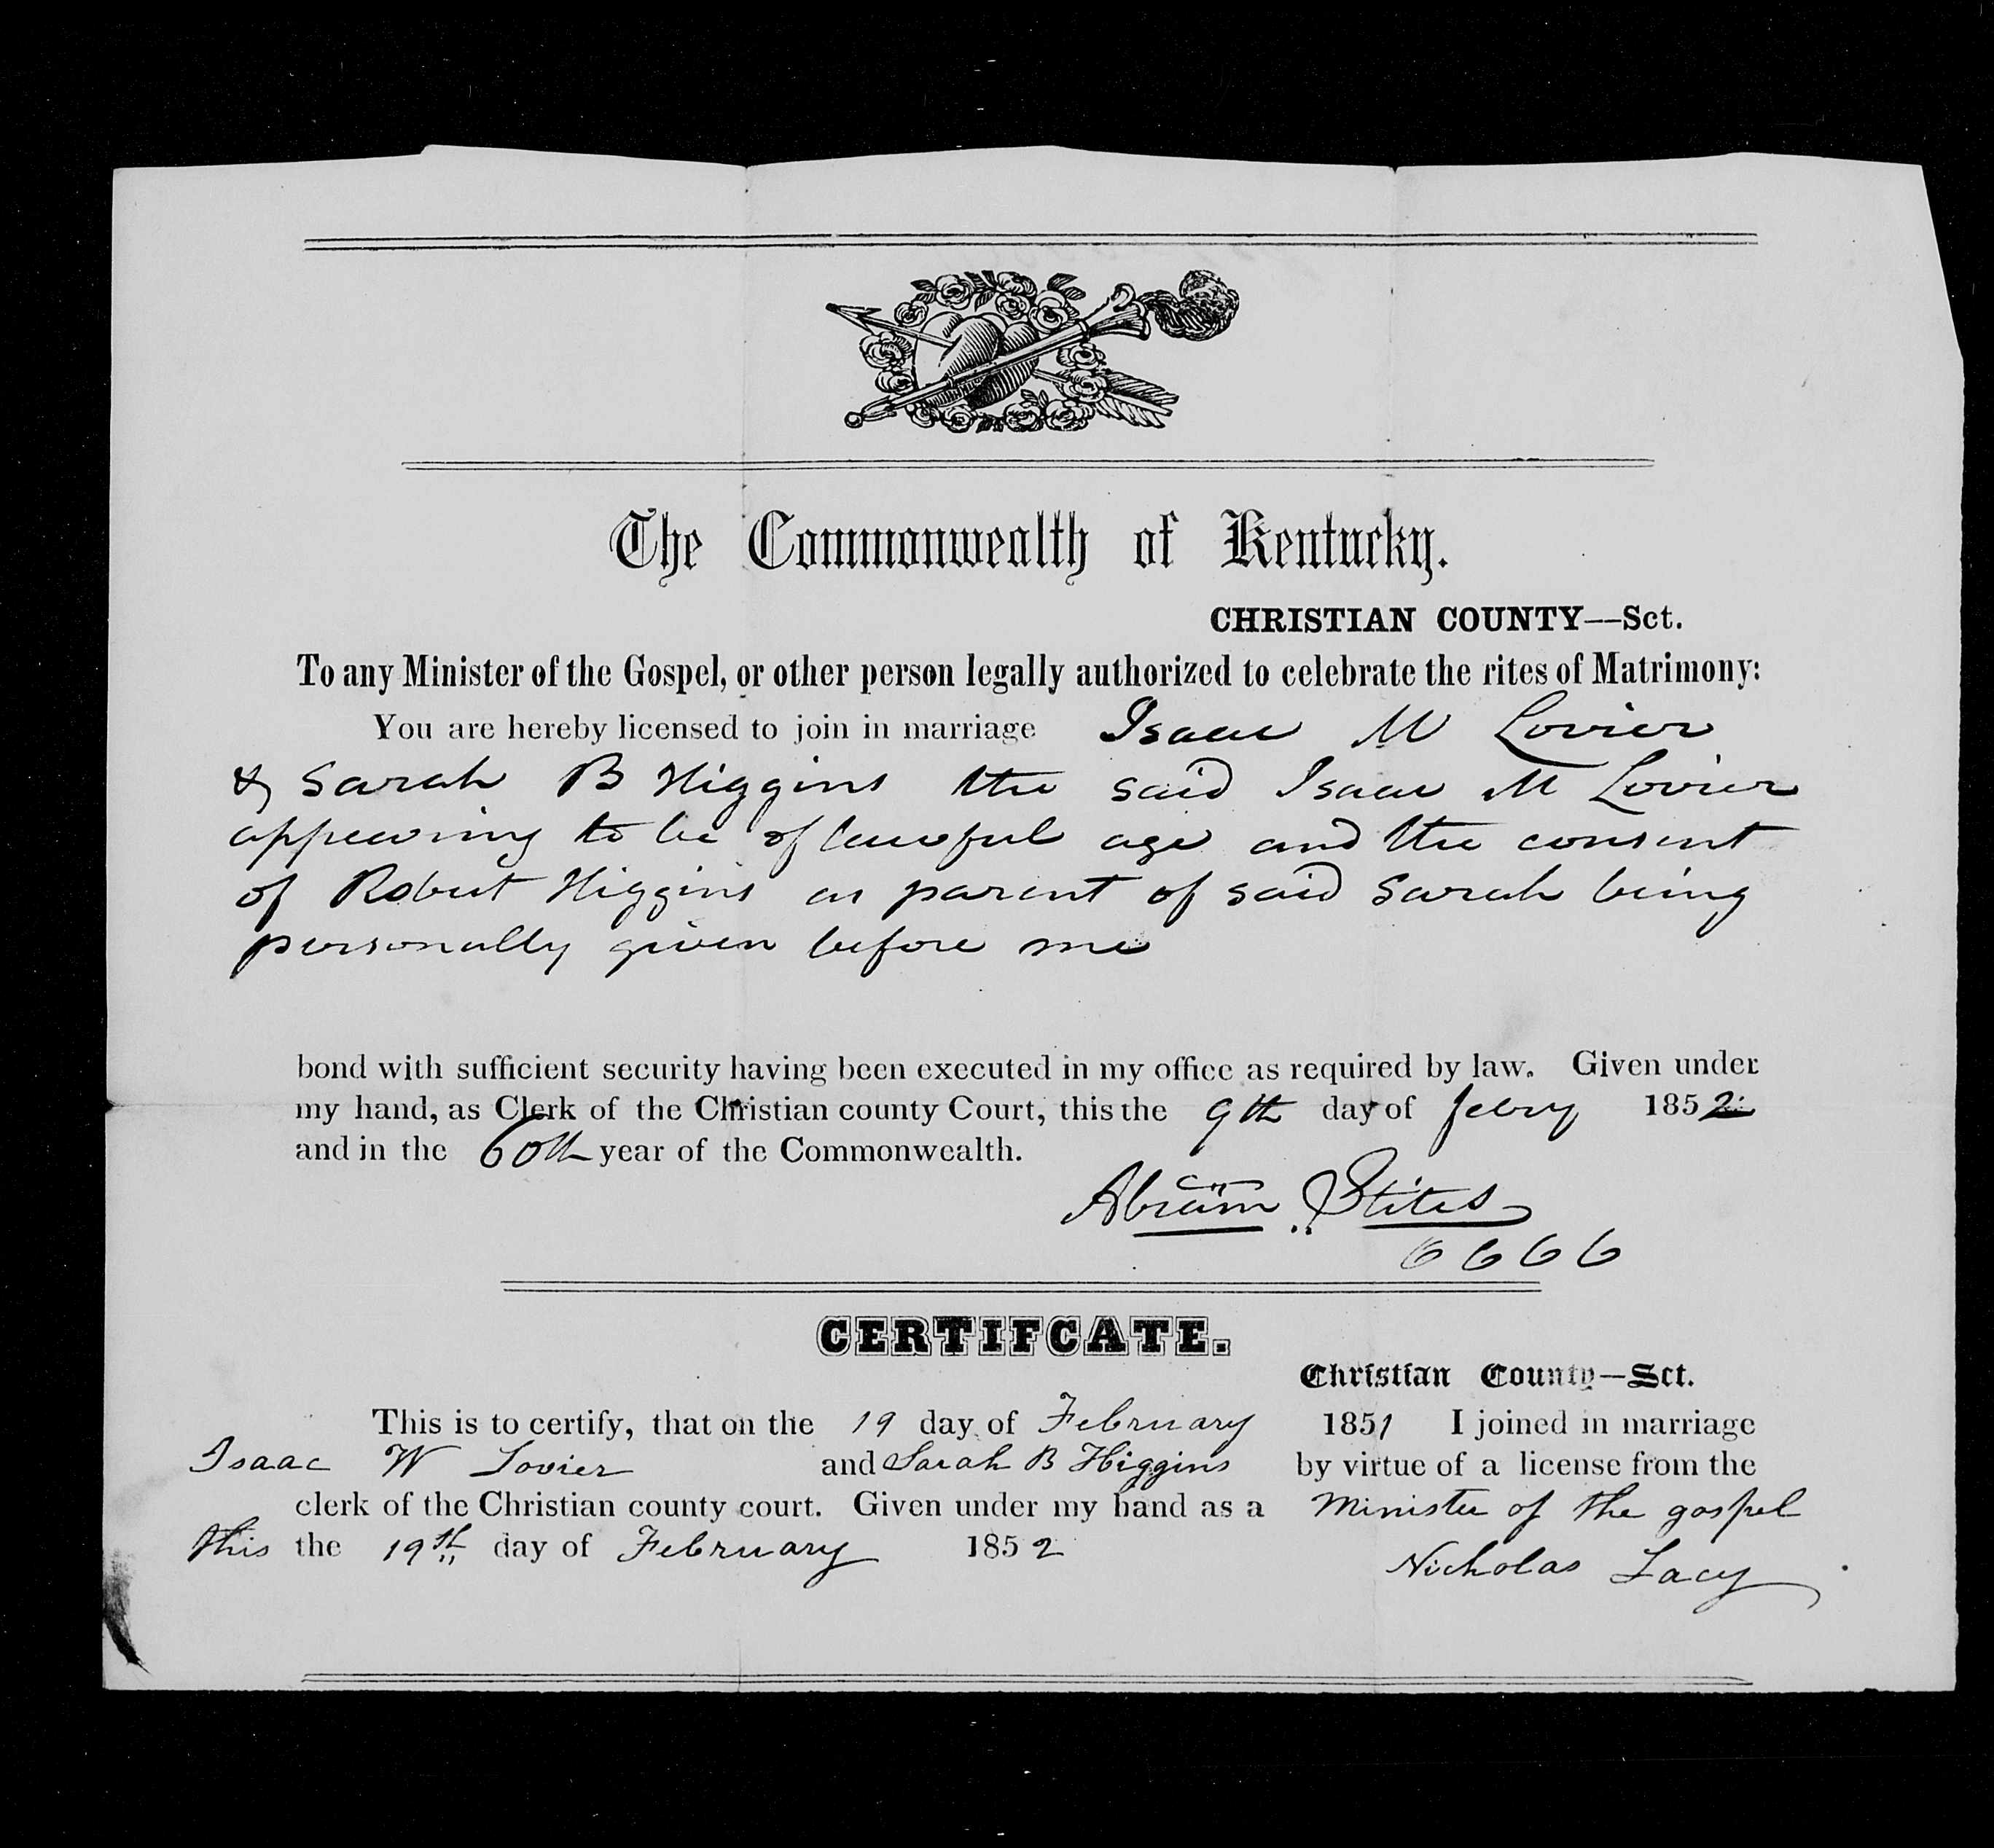 The Commonwealth of Kentucky.
CHRISTIAN COUNTY—Sct.
To any Minister of the Gospel, or other person legally authorized to celebrate the rites of Matrimony:
You are hereby licensed to join in marriage Isaac W Lovier
& Sarah B Higgins the said Isaac W Lovier
appearing to be of lawful age and the consent
of Robert Higgins as parent of said Sarah being
personally given before me
bond with sufficient security having been executed in my office as required by law. Given under
my hand, as Clerk of the Christian county Court, this the 9th day of Febry 1852
and in the 60th year of the Commonwealth.
Abram Stites
CERTIFCATE.
Christian County—Sct.
This is to certify, that on the 19 day of February 1851 I joined in marriage
Isaac W Lovier and Sarah B Higgins by virtue of a license from the
clerk of the Christian county court. Given under my hand as a Minister of the gospel
this the 19th day of February 1852
Nicholas Lacy